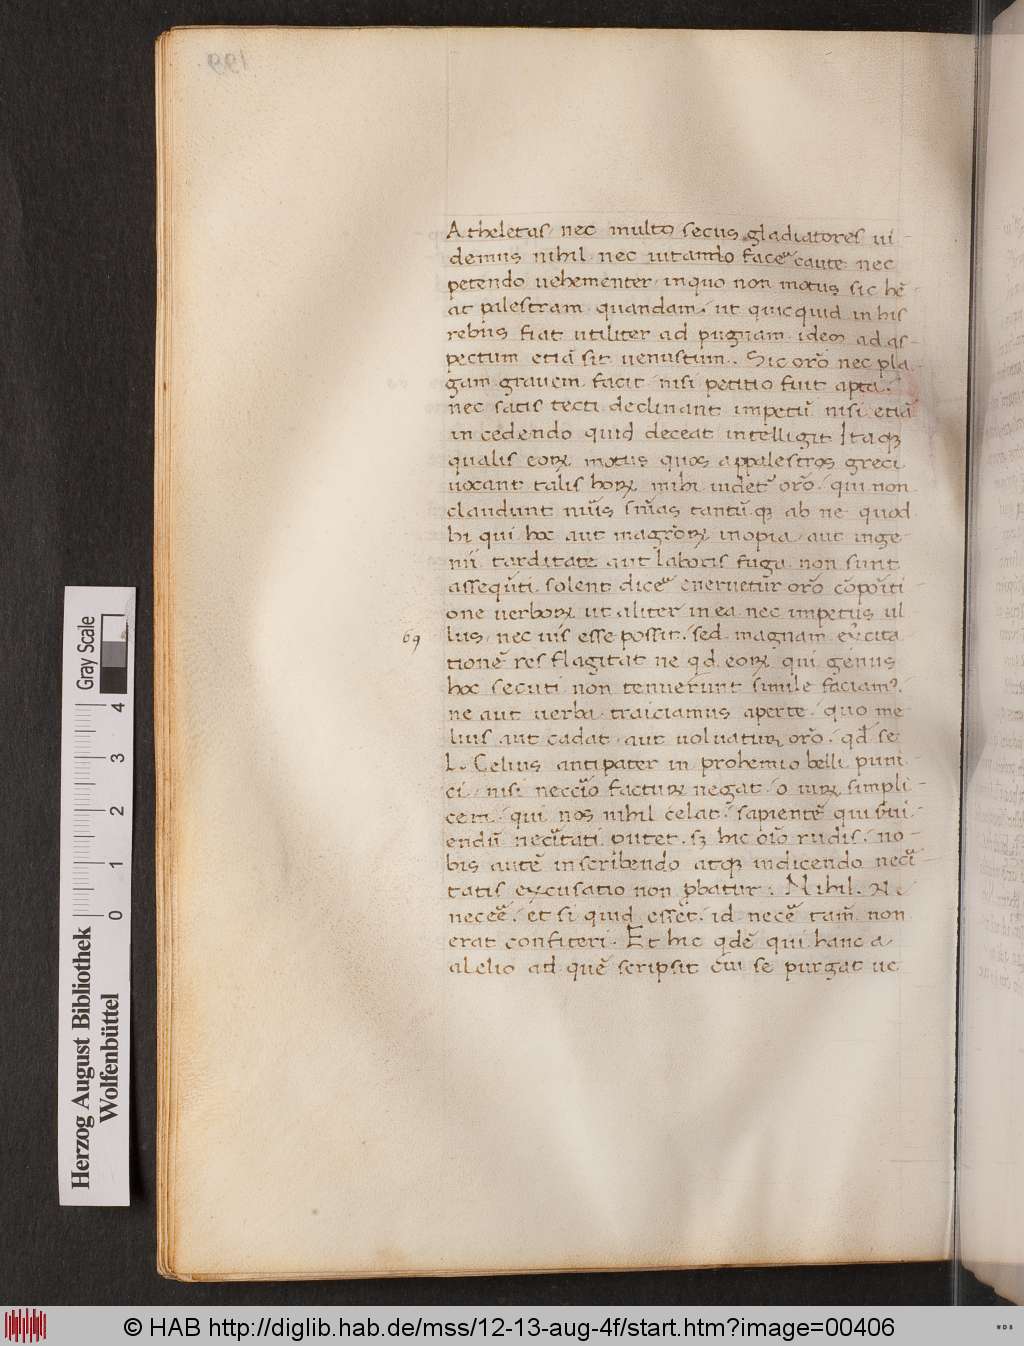 199
Atheletas nec multo secus gladiatores ui
demus nihil nec uitando facē caute nec
petendo uehementer inquo non motus sic hē
at palestram quandam. ut quicquid in his
rebus fiat utiliter ad pugnam idem ad as
pectum etiā sit uenustum. Sic orō nec pla
gam grauem facit nisi petitio fuit apta.
nec satis tecti declinant impetū nisi etiā
in cedendo quid deceat intelligit Itaqꝫ
qualis eoꝝ motus quos appalestros greci
uocant talis hoꝝ mihi uidet orō. qui non
claudunt nūs snīas tantūqꝫ ab ne quod
hi qui hoc aut magroꝝ inopia aut inge
nii tarditate aut laboris fuga non sunt
assequti solent dicē eneruetur orō cōpōiti
one uerboꝝ ut aliter in ea nec impetus ul
69 lus nec uis esse possit. sed magnam exercita
tionē res flagitat ne qd eoꝝ qui genus
hoc secuti non tenuerunt simile faciamꝰ.
ne aut uerba traiciamus aperte quo me
lius aut cadat aut uoluatur orō. qd se
L. Celius antipater in prohemio belli puni
ci nisi neccio factuꝝ negat o uiꝝ simpli
cem qui nos nihil celat sapientē qui sui
endū necitati putet. sꝫ hic oīo rudis. no
bis autē inscribendo atqꝫ indicendo neci
tatis excusatio non ꝓbatur. Nihil. Ne
neceē. et si quid esset. id necē tam̄ non
erat confiteri. Et hic qdē qui hanc a
alelio ad quē scripsit cui se purgat ue
Gray Scale
0 1 2 3 4
Herzog August Bibliothek
Wolfenbüttel
© HAB http://diglib.hab.de/mss/12-13-aug-4f/start.htm?image=00406